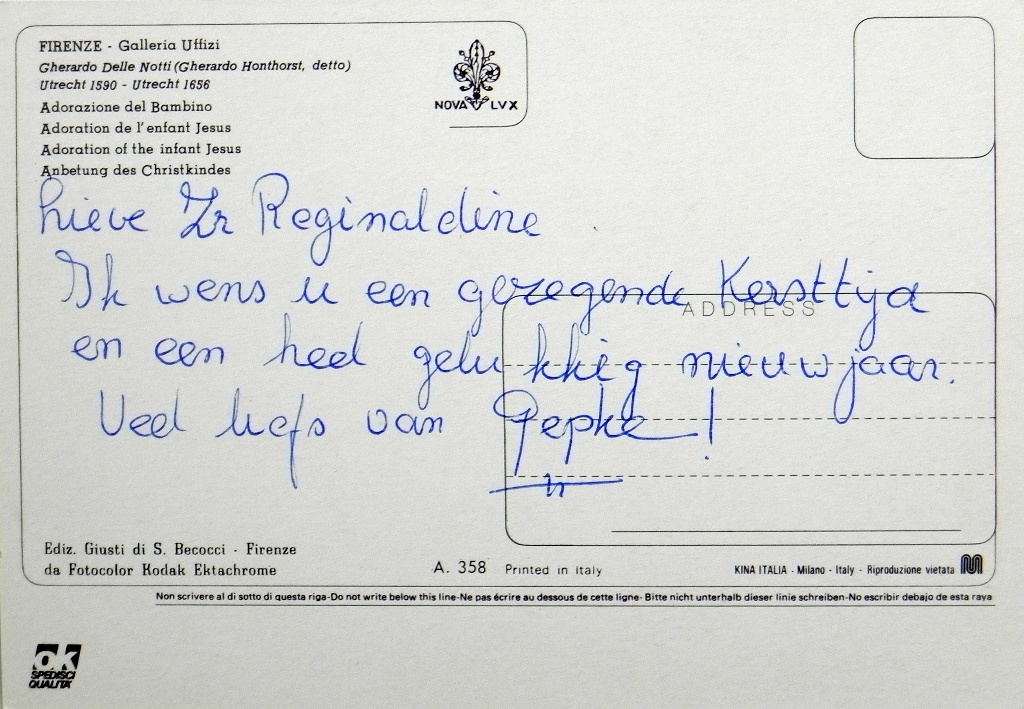 FIRENZE - Galleria Uffizi
Gherardo Delle Notti (Gherardo Honthorst, detto)
Utrecht 1590 - Utrecht 1656
Adorazione del Bambino
Adoration de l'enfant Jesus
Adoration of the infant Jesus
Anbetung des Christkindes
NOVA LVX
Lieve Zr Reginaldine
Ik wens u een gezegende Kersttijd
ADDRESS
en een heel gelukkig nieuwjaar.
Veel liefs van Gepke!
Ediz. Giusti di S. Becocci - Firenze
da Fotocolor Kodak Ektachrome
A. 358
Printed in Italy
KINA ITALIA - Milano - Italy - Riproduzione vietata
Non scrivere al di sotto di questa riga-Do not write below this line-Ne pas écrire au dessous de cette ligne-Bitte nicht unterhalb dieser linie schreiben-No escribir debajo de esta raya
ok
SPEDISCI
QUALITA'